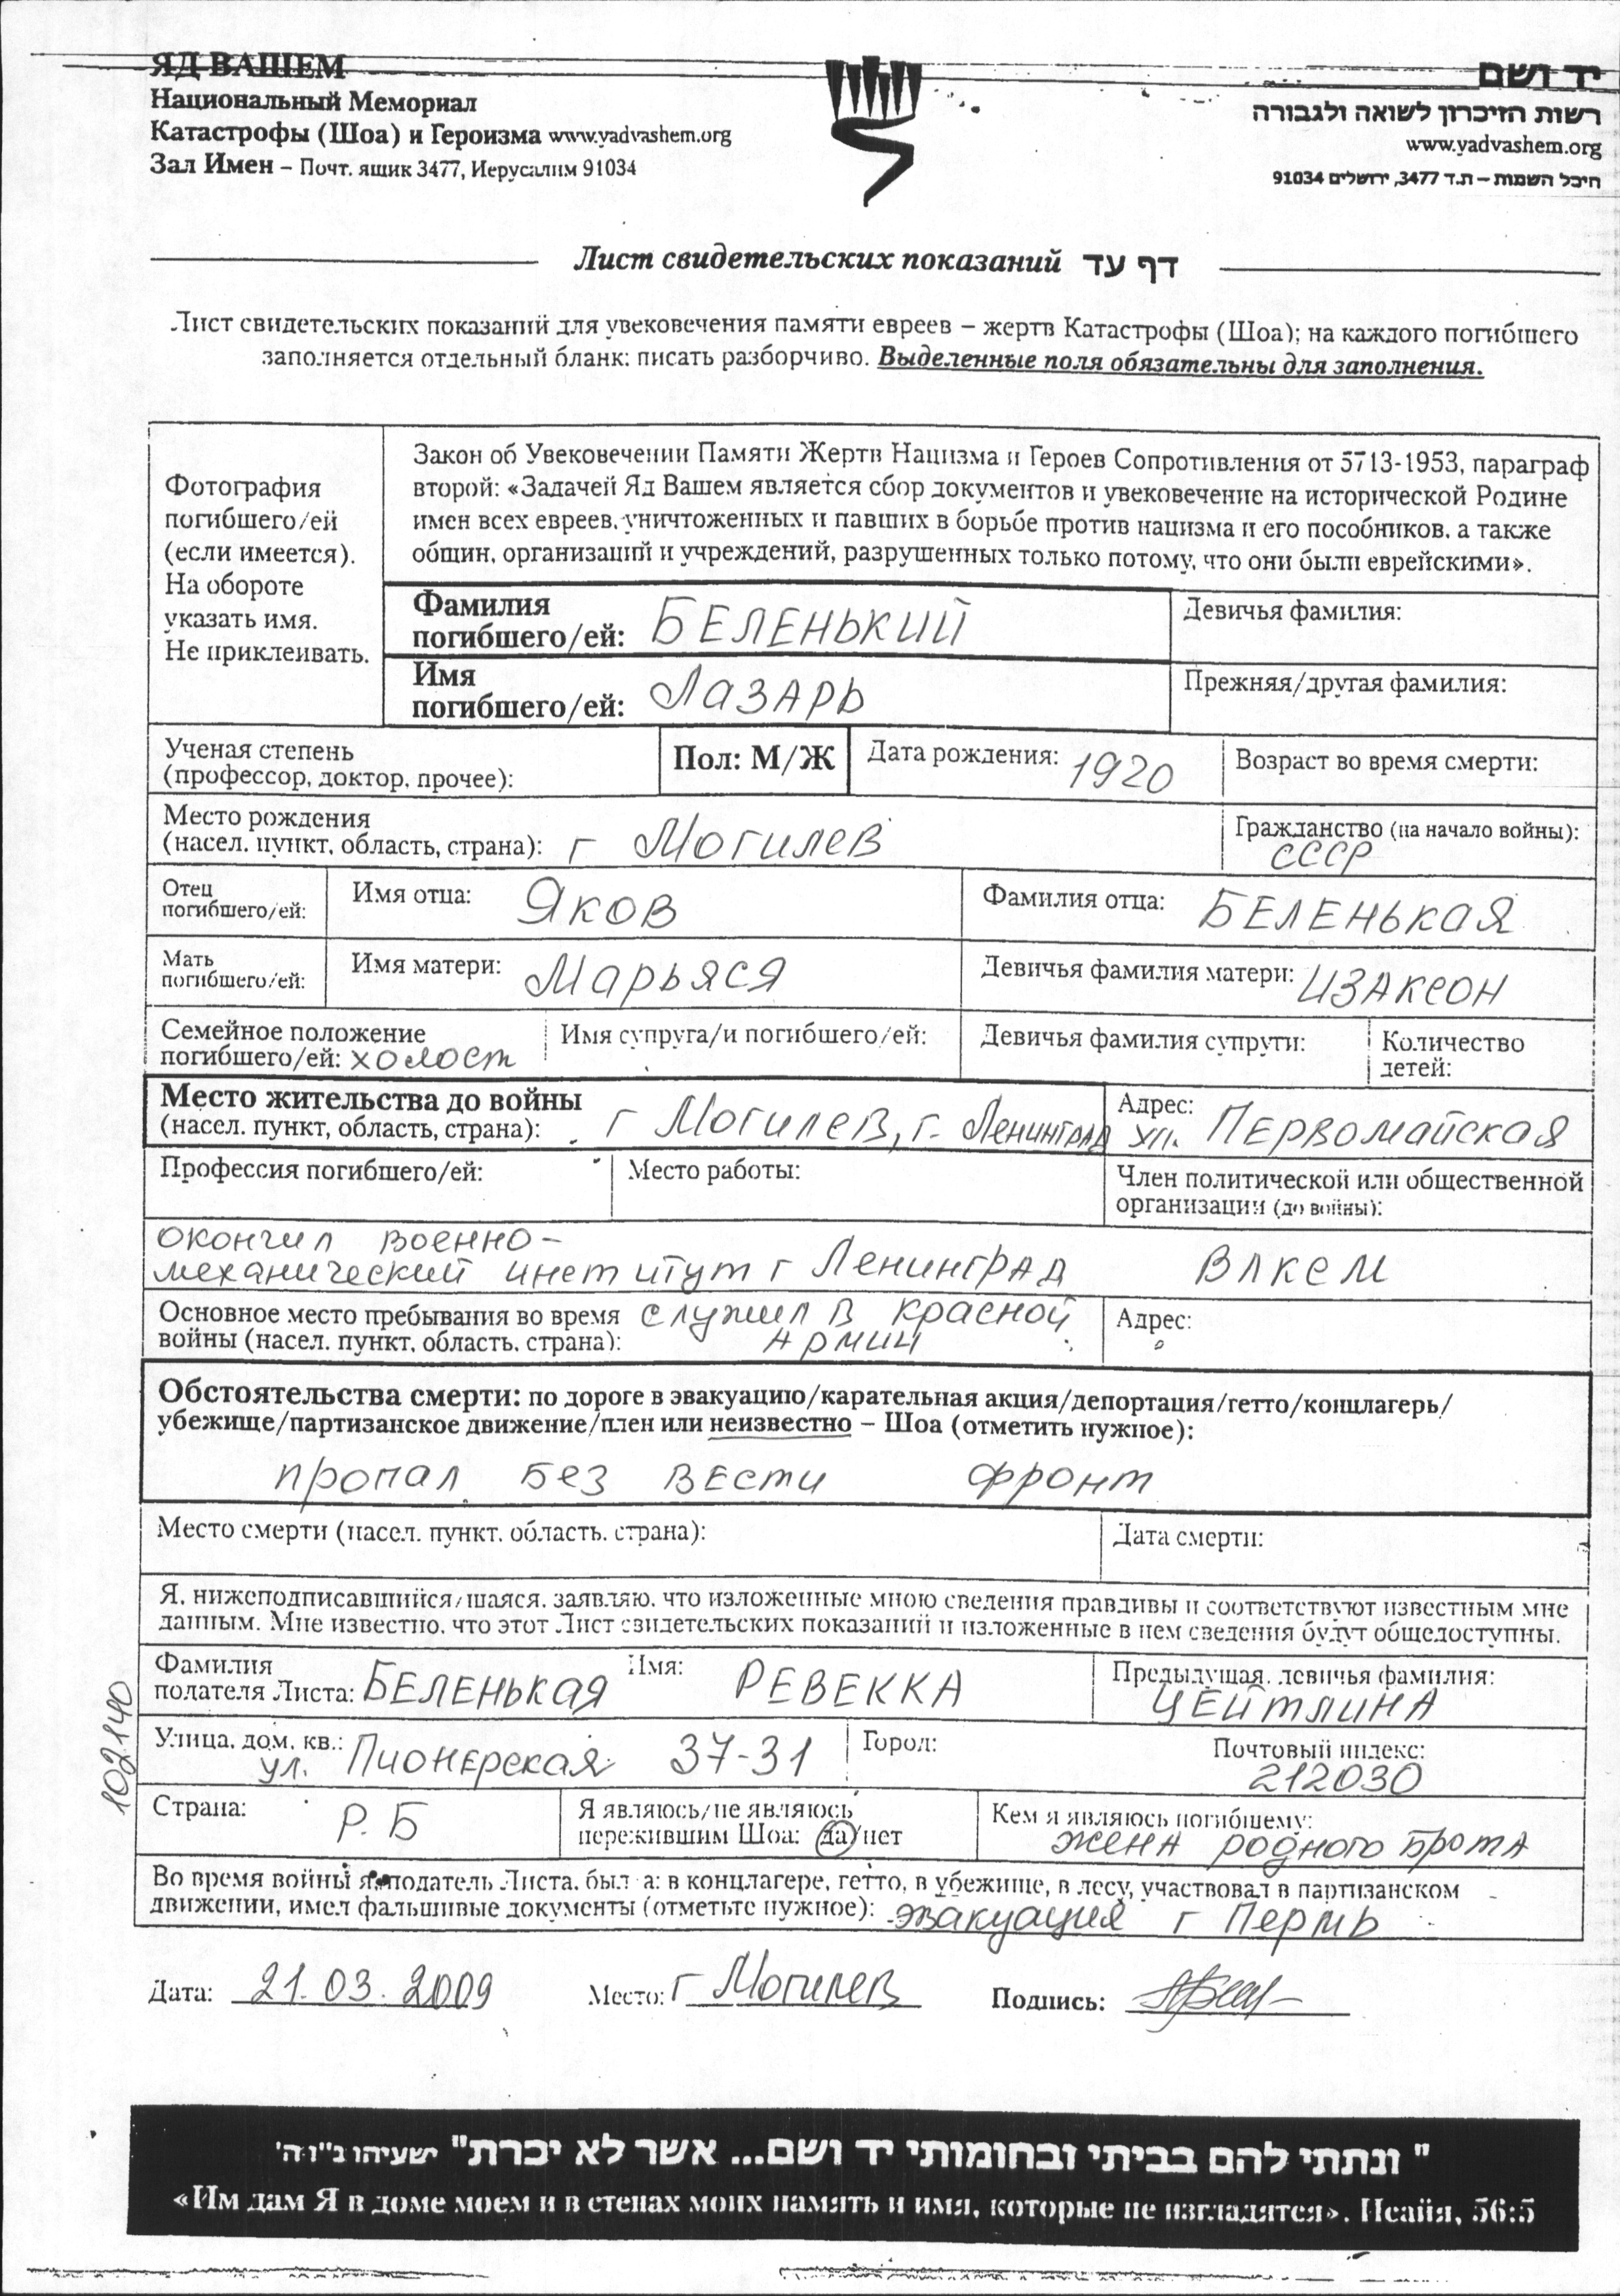 ЯД ВАШЕМ
Национальный Мемориал
Катастрофы (Шоа) и Героизма www.yadvashem.org
Зал Имен – Почт. ящик 3477, Иерусалим 91034
יד ושם
רשות הזיכרון לשואה ולגבורה
www.yadvashem.org
היכל השמות – ת.ד 3477, ירושלים 91034
Лист свидетельских показаний דף עד
Лист свидетельских показаний для увековечения памяти евреев – жертв Катастрофы (Шоа); на каждого погибшего
заполняется отдельный бланк: писать разборчиво. Выделенные поля обязательны для заполнения.
Фотография
погибшего/ей
(если имеется).
На обороте
указать имя.
Не приклеивать.
Закон об Увековечении Памяти Жертв Нацизма и Героев Сопротивления от 5713-1953, параграф
второй: «Задачей Яд Вашем является сбор документов и увековечение на исторической Родине
имен всех евреев, уничтоженных и павших в борьбе против нацизма и его пособников, а также
общин, организаций и учреждений, разрушенных только потому, что они были еврейскими».
Фамилия
погибшего/ей: БЕЛЕНЬКИЙ
Девичья фамилия:
Имя
погибшего/ей: ЛАЗАРЬ
Прежняя/другая фамилия:
Ученая степень
(профессор, доктор, прочее):
Пол: М/Ж
Дата рождения: 1920
Возраст во время смерти:
Место рождения
(насел. пункт, область, страна): г Могилев
Гражданство (на начало войны):
СССР
Отец
погибшего/ей:
Имя отца: Яков
Фамилия отца: БЕЛЕНЬКАЯ
Мать
погибшего/ей:
Имя матери: Марьяся
Девичья фамилия матери: ИЗАКСОН
Семейное положение
погибшего/ей: холост
Имя супруга/и погибшего/ей:
Девичья фамилия супруги:
Количество
детей:
Место жительства до войны
(насел. пункт, область, страна): г Могилев, г. Ленинград
Адрес:
ул. Первомайская
Профессия погибшего/ей:
Место работы:
Член политической или общественной
организации (до войны):
окончил военно-
механический институт г Ленинград ВЛКСМ
Основное место пребывания во время служил в Красной
войны (насел. пункт, область, страна): Армии
Адрес:
Обстоятельства смерти: по дороге в эвакуацию/карательная акция/депортация/гетто/концлагерь/
убежище/партизанское движение/плен или неизвестно – Шоа (отметить нужное):
пропал без вести фронт
Место смерти (насел. пункт, область, страна):
Дата смерти:
Я, нижеподписавшийся/шаяся, заявляю, что изложенные мною сведения правдивы и соответствуют известным мне
данным. Мне известно, что этот Лист свидетельских показаний и изложенные в нем сведения будут общедоступны.
Фамилия
подателя Листа: БЕЛЕНЬКАЯ
Имя: РЕВЕККА
Предыдущая, девичья фамилия:
ЦЕЙТЛИНА
Улица, дом, кв.:
ул. Пионерская 37-31
Город:
Почтовый индекс:
212030
Страна: Р.Б
Я являюсь/не являюсь
пережившим Шоа: да/нет
Кем я являюсь погибшему:
жена родного брата
Во время войны я, податель Листа, был/а: в концлагере, гетто, в убежище, в лесу, участвовал в партизанском
движении, имел фальшивые документы (отметьте нужное): эвакуация г Пермь
102140
Дата: 21.03.2009
Место: г Могилев
Подпись:
"ונתתי להם בביתי ובחומותי יד ושם... אשר לא יכרת" ישעיהו נ"ו ה'
«Им дам Я в доме моем и в стенах моих память и имя, которые не изгладятся». Исайя, 56:5